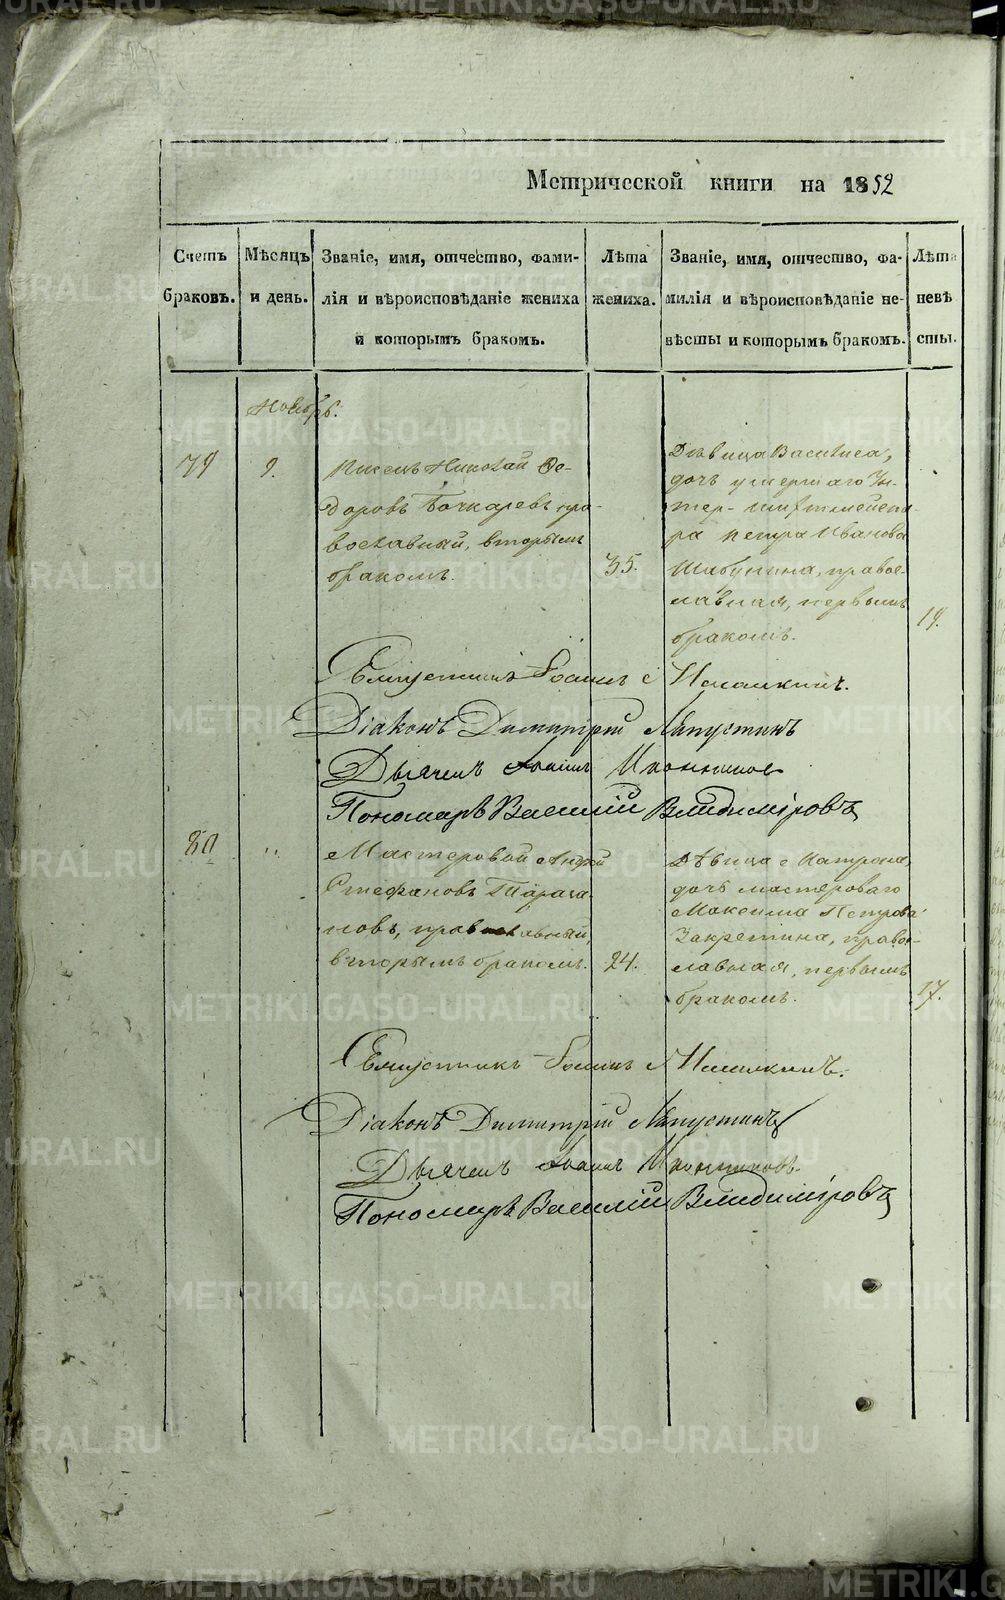 Метрической книги на 1852
Счетъ браковъ.
Мѣсяцъ и день.
Званіе, имя, отчество, фами-
лія и вѣроисповѣданіе жениха
и которымъ бракомъ.
Лѣта жениха.
Званіе, имя, отчество, фа-
милія и вѣроисповѣданіе не-
вѣсты и которымъ бракомъ.
Лѣта невѣ
сты.
Ноябрь.
79
9.
Писецъ Николай Ѳе-
доровъ Бочкаревъ, пра-
вославный, вторымъ
бракомъ.
35.
Дѣвица Васса,
дочь умершаго Ун-
теръ-шихтмейсте-
ра Петра Иванова
Шабунина, правос-
лавная, первымъ
бракомъ.
19.
Іоаннъ
Діаконъ Димитрій Ляпустинъ
Дьячекъ Іоаннъ Иконниковъ
Пономарь Василій Владиміровъ
80
"
Мастеровой Андрей
Стефановъ Тарака-
новъ, православный,
вторымъ бракомъ.
24.
Дѣвица
дочь мастероваго
Максима Петрова
Закретина, правос-
лавная, первымъ
бракомъ.
17.
Іоаннъ
Діаконъ Димитрій Ляпустинъ
Дьячекъ Іоаннъ Иконниковъ
Пономарь Василій Владиміровъ
METRIKI.GASO-URAL.RU